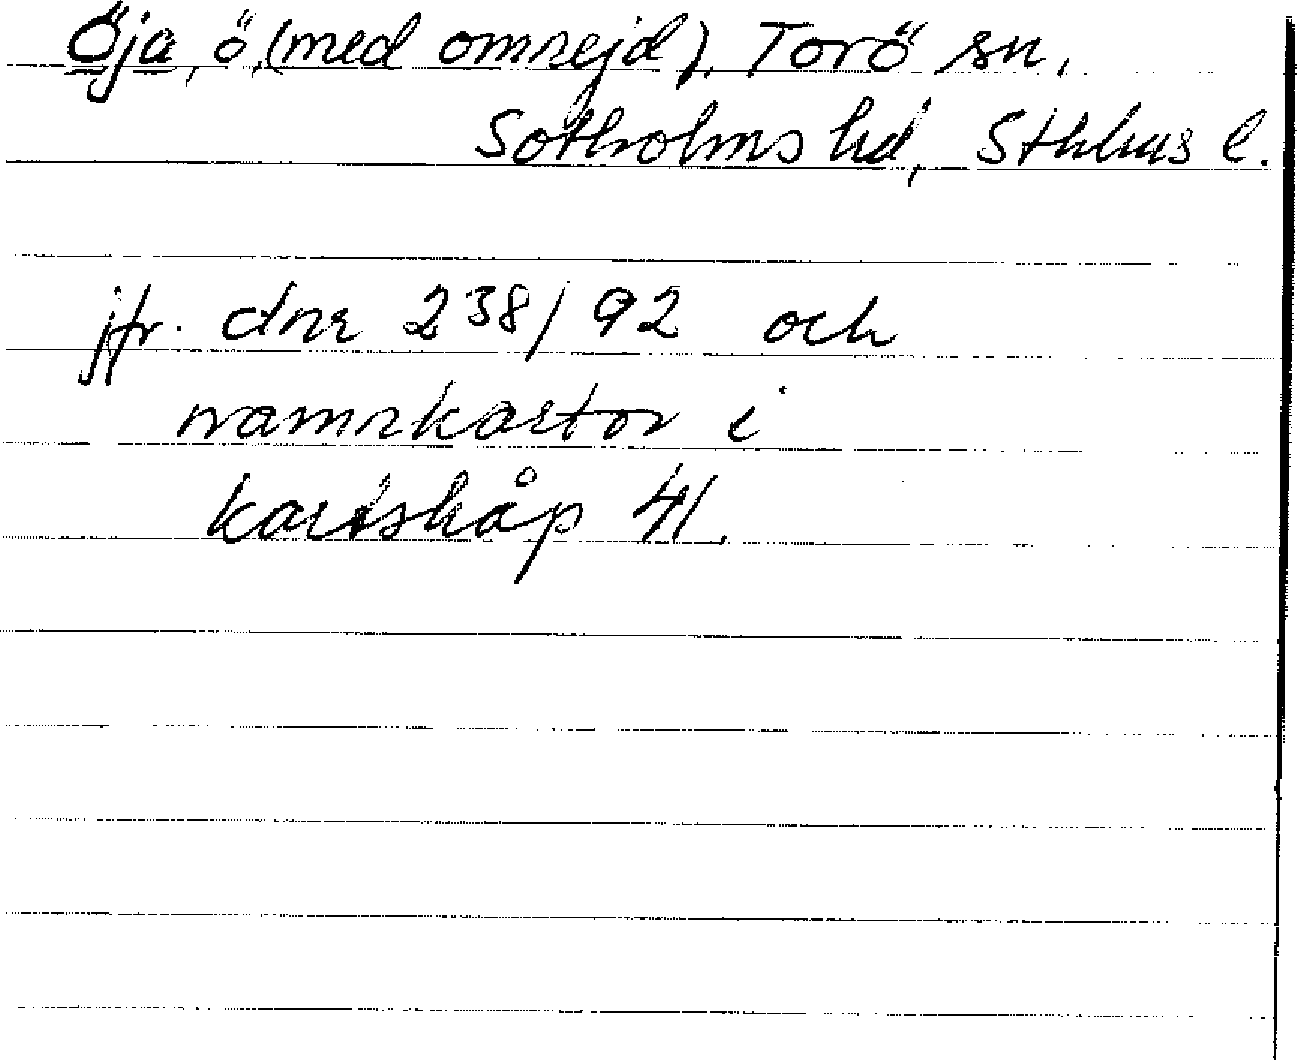 Öja, ö, (med omnejd), Torö sn,
Sotholms hd, Sthlms l.
jfr. dnr 238/92 och
namnkartor i
kartskåp 41.